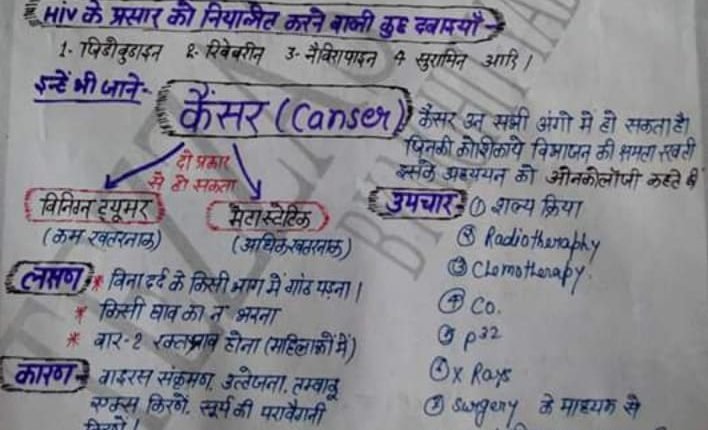 HIV के प्रसार को नियन्त्रित करने वाली कुछ दवाइयाँ -
1- जिडोवुडाइन 2- रिवेवरीन 3- नैविरापाइन 4 सुरामिन आदि।
इन्हें भी जाने-
कैंसर (Canser)
दो प्रकार
से हो सकता
बिनिग्न ट्यूमर
(कम खतरनाक)
मेटास्टेटिक
(अधिक खतरनाक)
कैंसर उन सभी अंगो में हो सकता है।
जिनकी कोशिकाये विभाजन की क्षमता रखती
इसके अध्ययन को ओनकोलॉजी कहते हैं
लक्षण * बिना दर्द के किसी भाग में गांठ पड़ना।
* किसी घाव का न भरना
* बार-2 रक्तस्राव होना (महिलाओं में)
कारण - वाइरस संक्रमण, उत्तेजना, तम्बाकू
एक्स किरणें, सूर्य की पराबैगनी
किरणें।
उपचार- ① शल्य क्रिया
② Radiotheraphy
③ Clemotherapy.
④ Co.
⑤ P32
⑥ X Rays
⑦ Surgery के माध्यम से